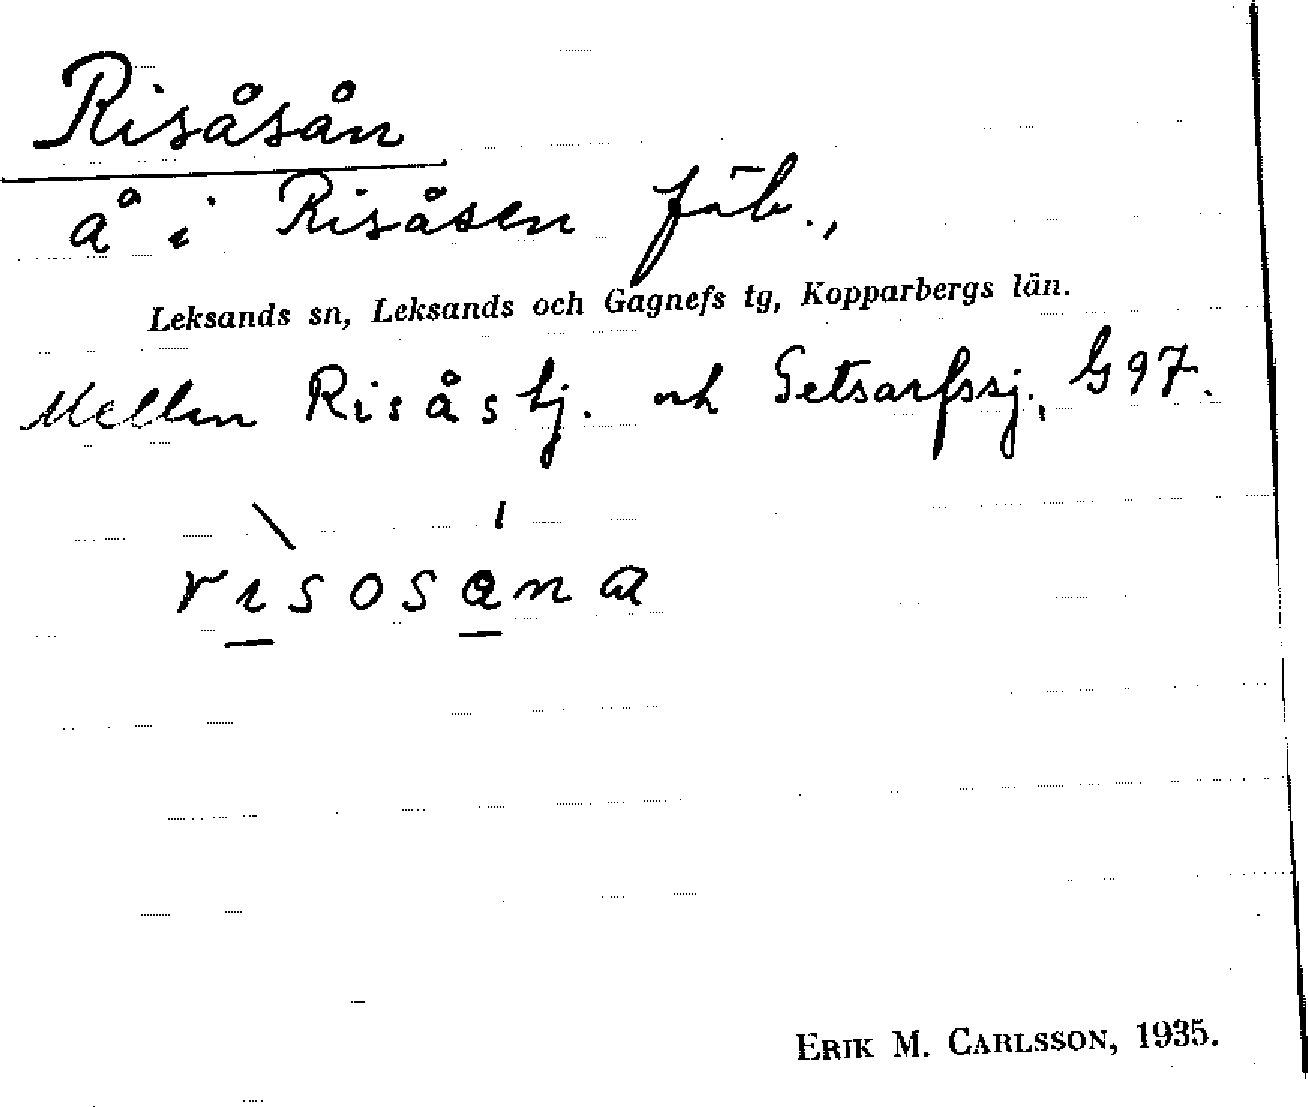 Risåsån
å i Risåsen fäb.,
Leksands sn, Leksands och Gagnefs tg, Kopparbergs län.
Mellan Risåstj. och Getsarfssj., G 97.
r i s o s a n a
ERIK M. CARLSSON, 1935.